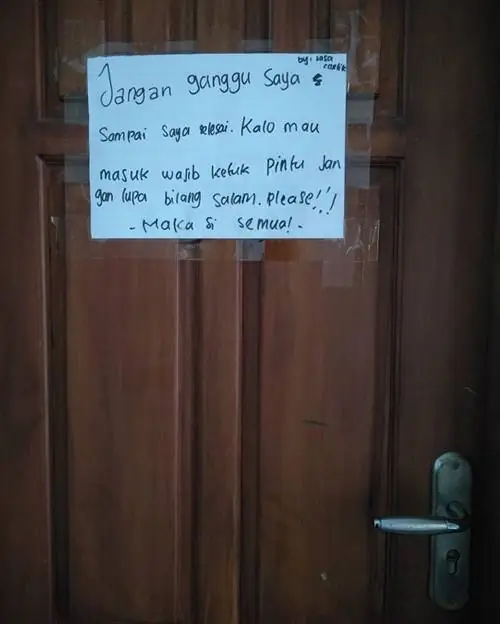 by: sasa
cantik
Jangan ganggu saya
Sampai saya selesai. Kalo mau
masuk wajib ketuk pintu Jan
gan lupa bilang salam. Please!!!
- Maka si semua! -